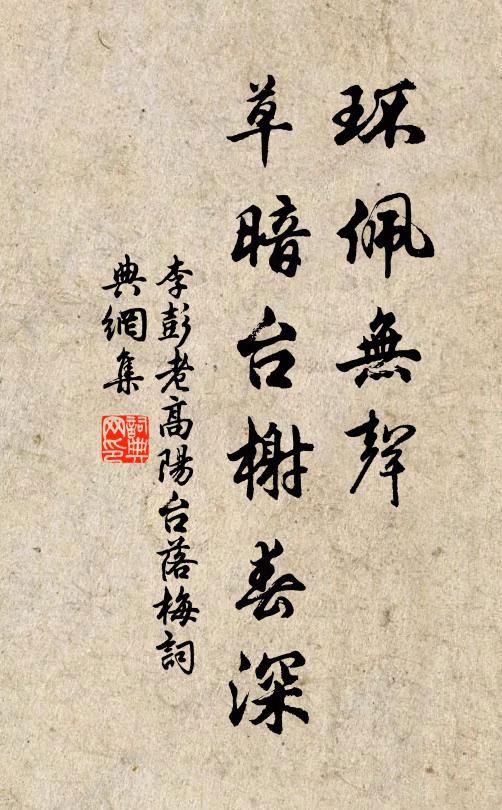 环佩無聲
草暗台榭春深
李彭老高陽台落梅詞
典網集
詞典
网印